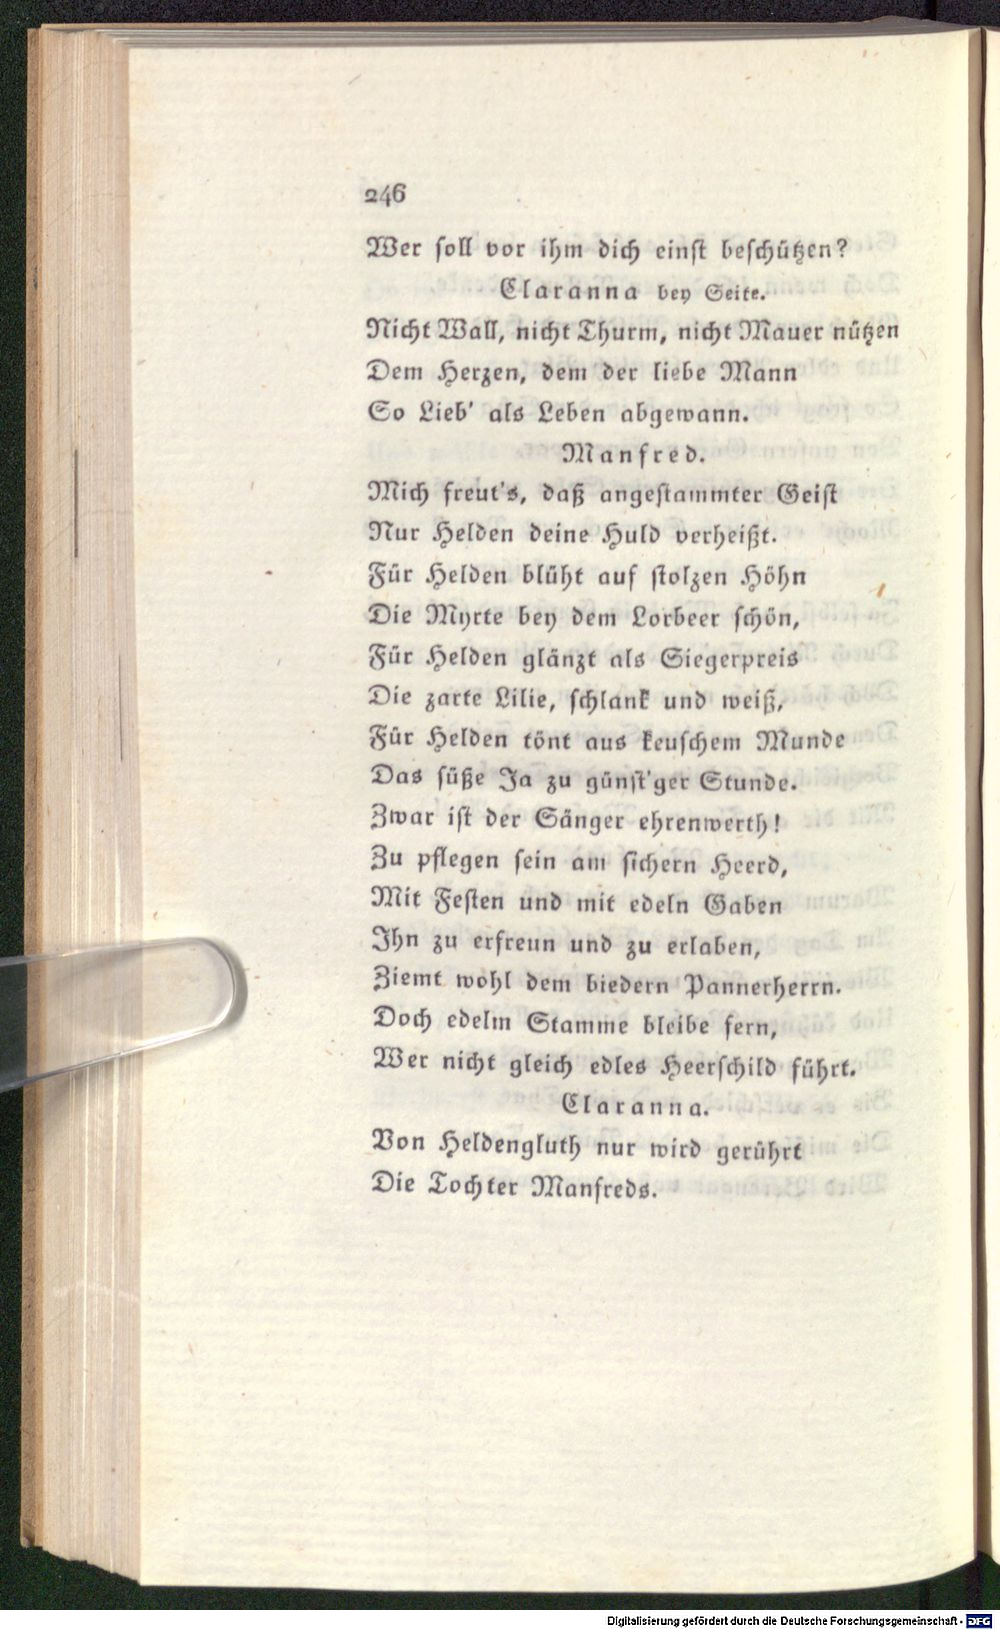 246
Wer soll vor ihm dich einst beschützen?
Claranna bey Seite.
Nicht Wall, nicht Thurm, nicht Mauer nützen
Dem Herzen, dem der liebe Mann
So Lieb' als Leben abgewann.
Manfred.
Mich freut's, daß angestammter Geist
Nur Helden deine Huld verheißt.
Für Helden blüht auf stolzen Höhn
Die Myrte bey dem Lorbeer schön,
Für Helden glänzt als Siegerpreis
Die zarte Lilie, schlank und weiß,
Für Helden tönt aus keuschem Munde
Das süße Ja zu günst'ger Stunde.
Zwar ist der Sänger ehrenwerth!
Zu pflegen sein am sichern Heerd,
Mit Festen und mit edeln Gaben
Ihn zu erfreun und zu erlaben,
Ziemt wohl dem biedern Pannerherrn.
Doch edelm Stamme bleibe fern,
Wer nicht gleich edles Heerschild führt.
Claranna.
Von Heldengluth nur wird gerührt
Die Tochter Manfreds.
Digitalisierung gefördert durch die Deutsche Forschungsgemeinschaft - DFG